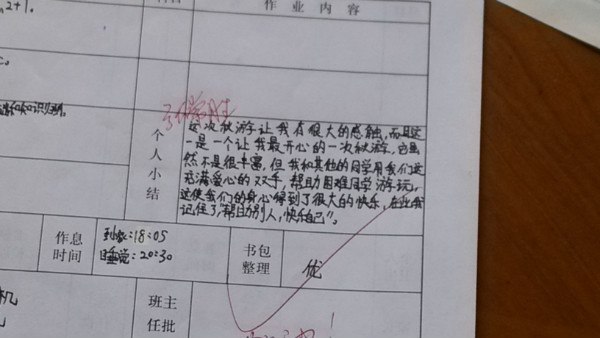 作业内容
2+1.
这次秋游让我有很大的感触,而且这
一是一个让我最开心的一次秋游,它虽
然不是很丰富,但我和其他的同学用我们这
充满爱心的双手,帮助困难同学游玩,
这使我们的身心得到了很大的快乐,在此我
记住了,"帮助别人,快乐自己"。
个人小结
作息时间
到家:18:05
睡觉:20:30
书包整理
优
机
班主
任批